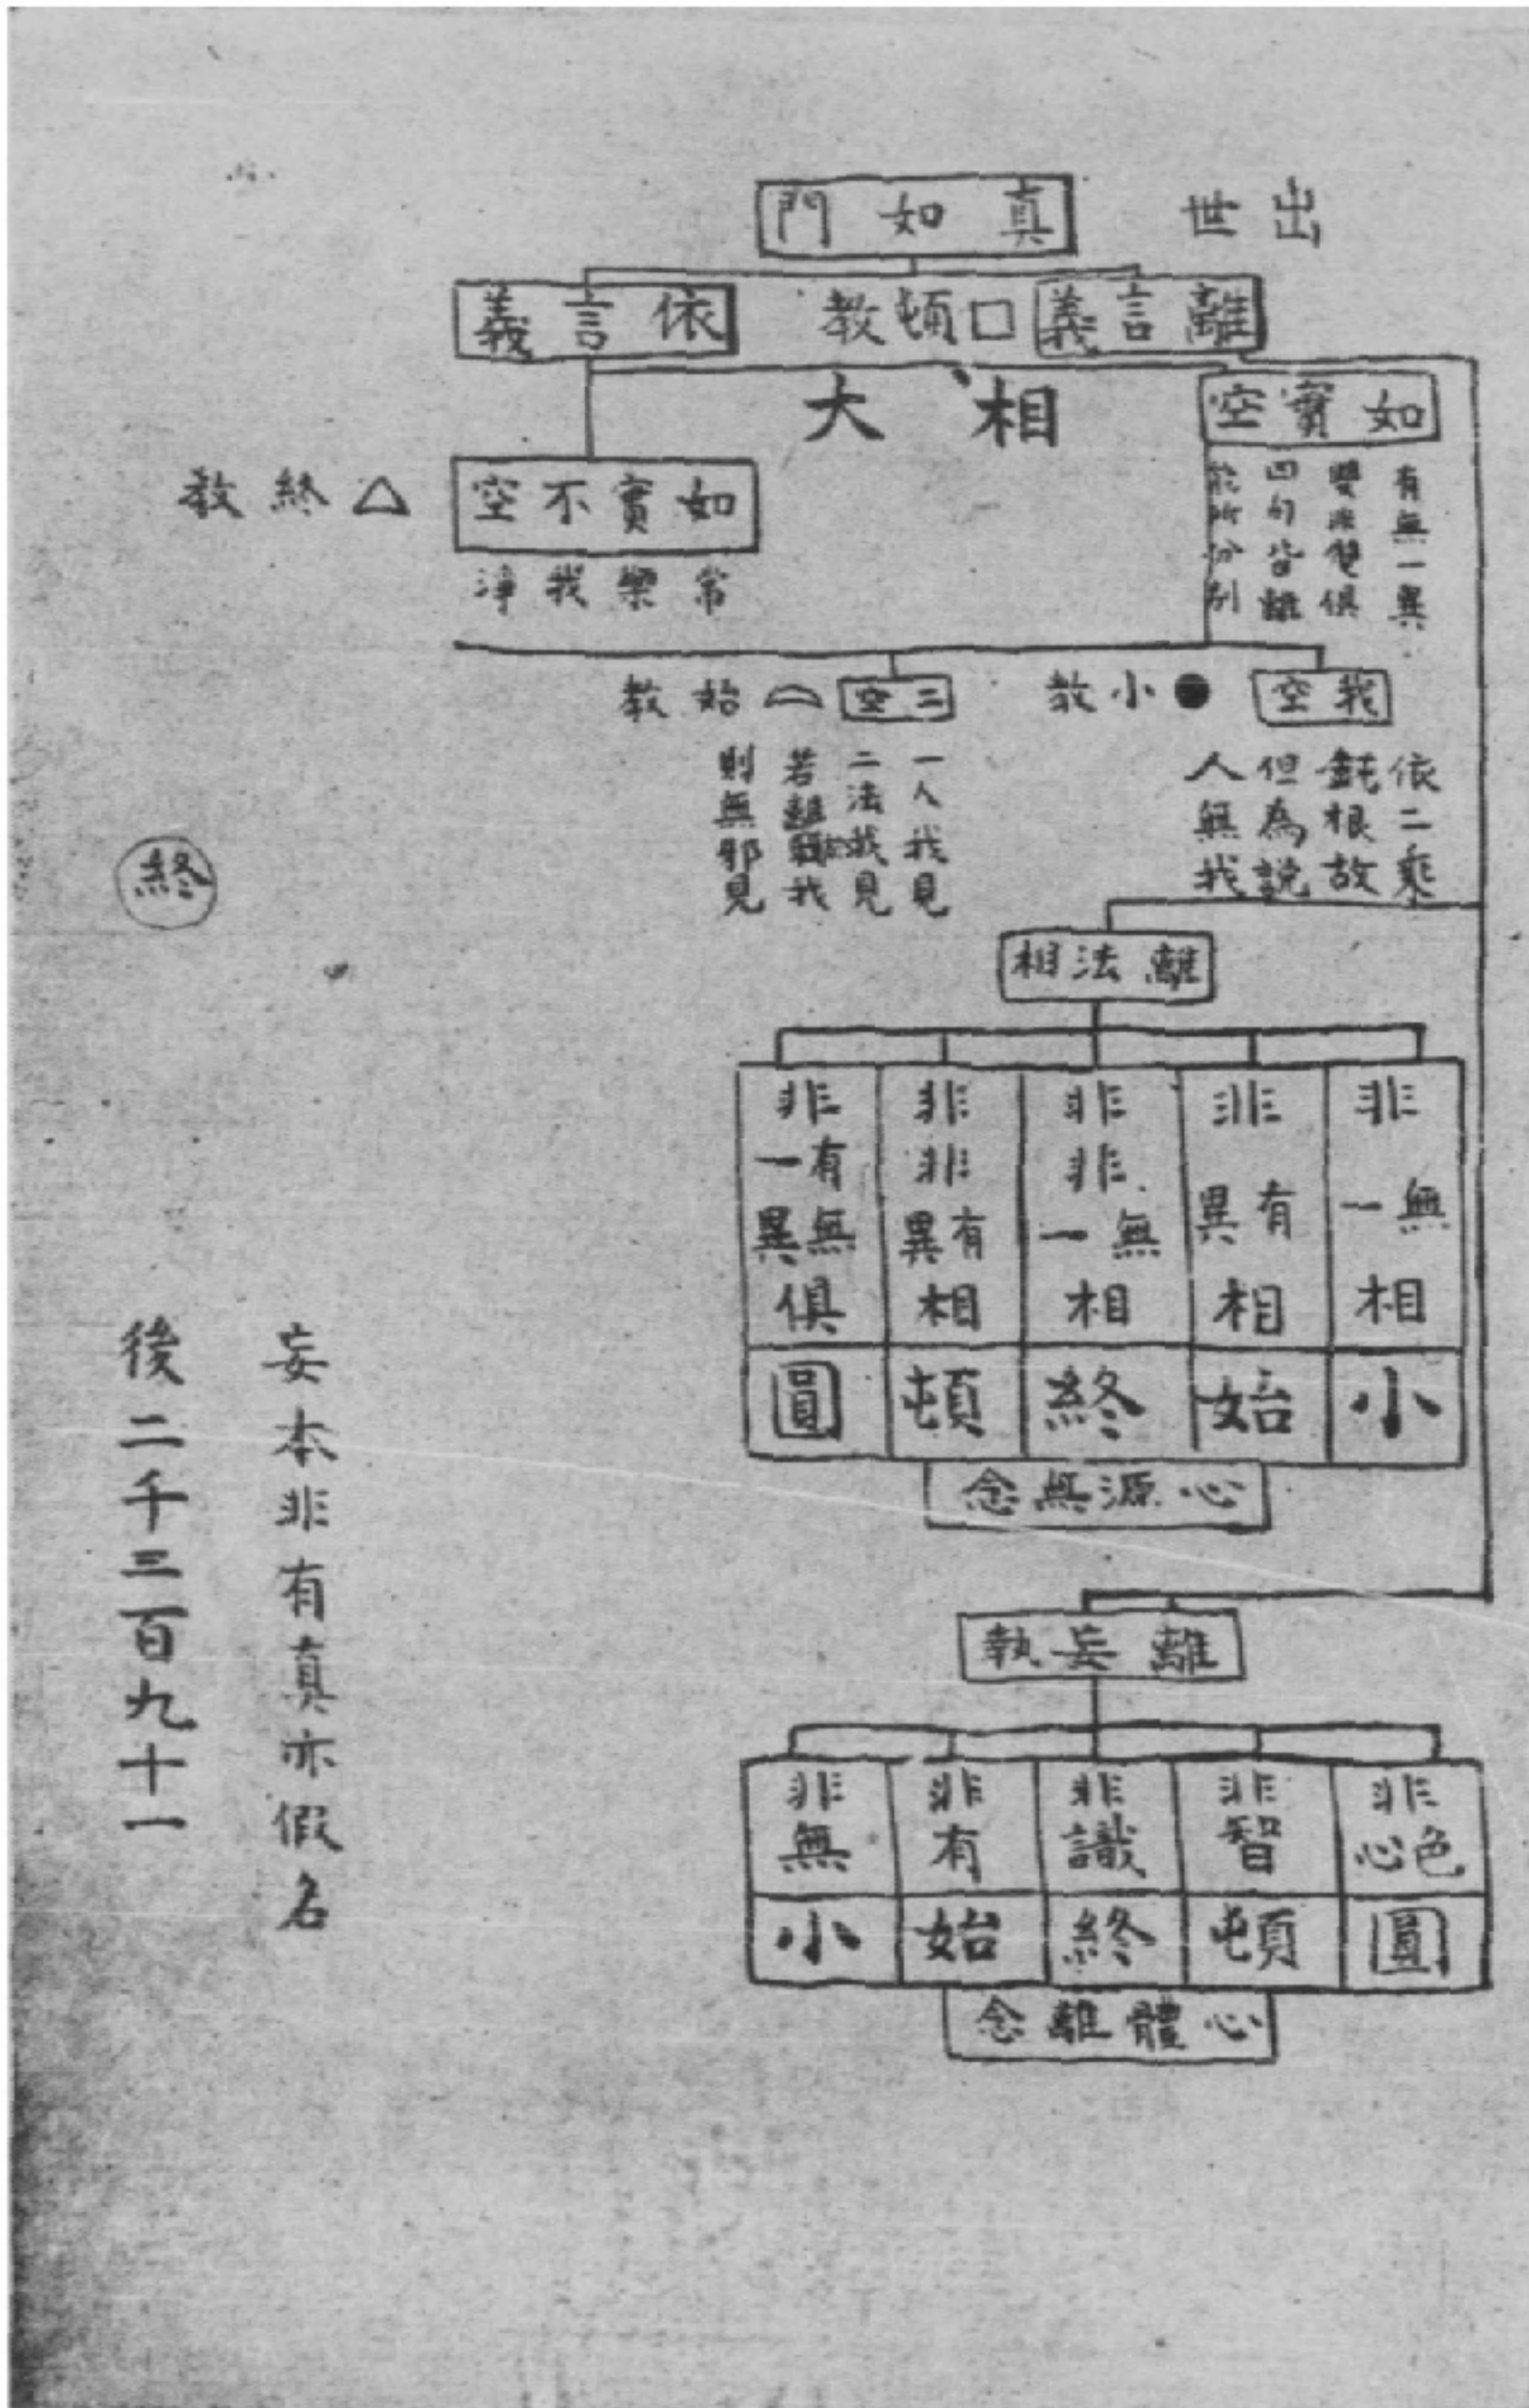 出世
真如門
離言義
□頓教
依言義
相大
如實空
有無一異
雙非雙俱
四句皆離
分別
如實不空
△終教
常樂我淨
我空
●小教
依二乘
鈍根故
但為說
人無我
二空
始教
一人我見
二法我見
則無邪見
離法相
非無一相
非有異相
非非無一相
非非有異相
非有無一異俱
小
始
終
頓
圓
心源無念
離妄執
非色心
非智
非識
非有
非無
圓
頓
終
始
小
心體離念
妄本非有真亦假名
後二千三百九十一
終